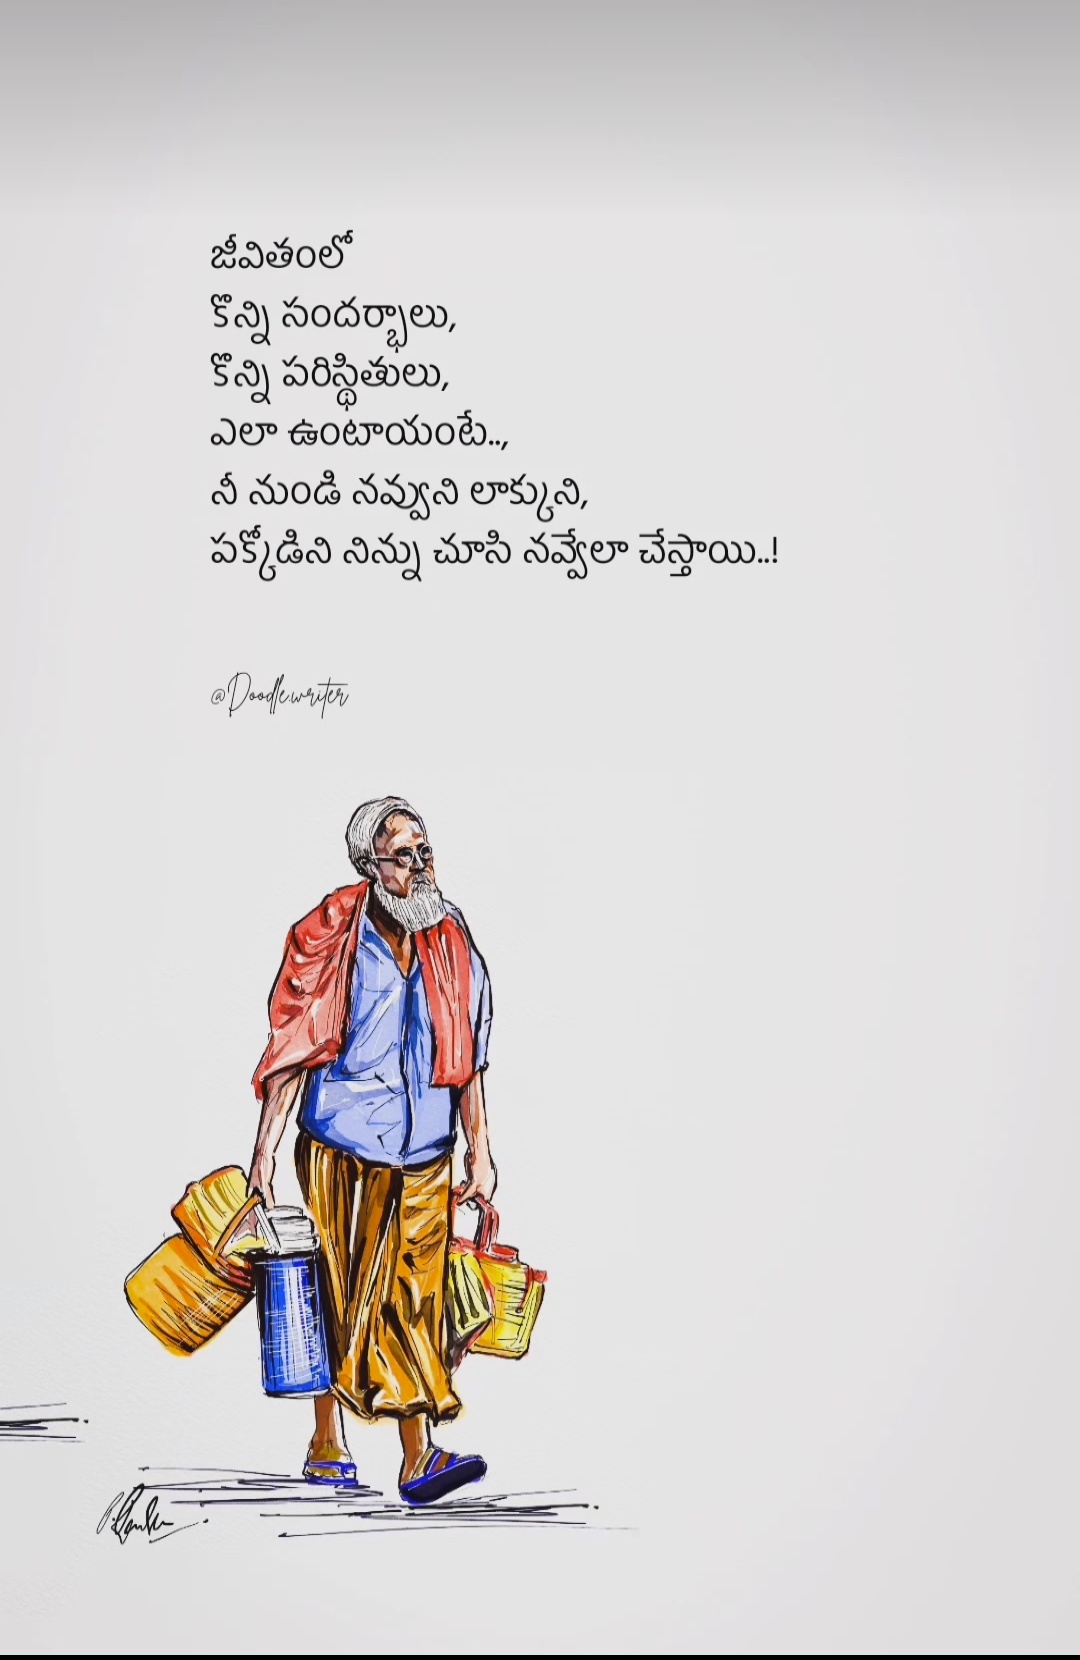 జీవితంలో
కొన్ని సందర్భాలు,
కొన్ని పరిస్థితులు,
ఎలా ఉంటాయంటే..,
నీ నుండి నవ్వుని లాక్కుని,
పక్కోడిని నిన్ను చూసి నవ్వేలా చేస్తాయి..!
@Doodle.writer